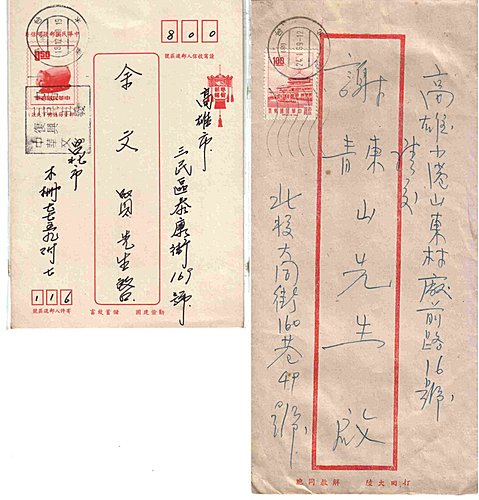 中華民國郵政明信片
800
請寫收信人郵遞區號
1.50
高雄市
三民區泰康街169號
余文賢先生啓
復興
中華文
台北市
木柵
116
寄件人郵遞區號
勤儉建國 儲蓄致富
100
高雄小港山東村廠前路16號
謝東山先生 啟
青
北投大同街160巷49號
打回大陸 解救同胞